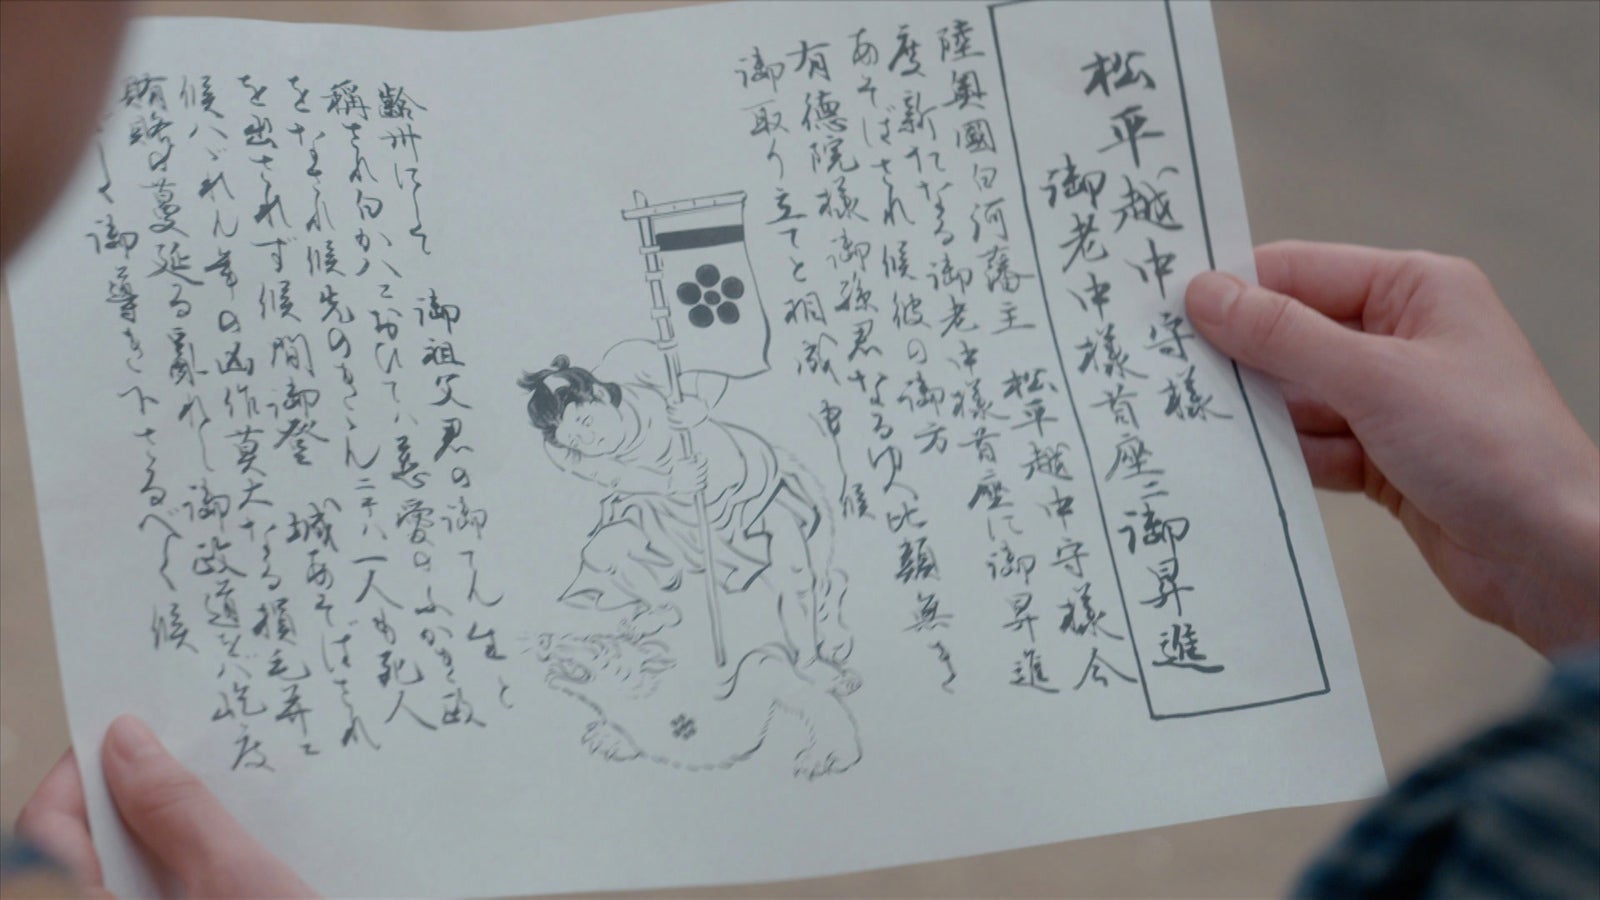 松平越中守様
御老中様首座ニ御昇進
陸奥國白河藩主 松平越中守様今
度新たなる御老中様首座に御昇進
あそばされ候彼の御方
有德院様御孫君なるゆへ比類無き
御取り立てと相成申し候
御祖父君の御てん生と
齢卅にして
稱され白かハにおひてハ慈愛のふかき政
をなされ候先のききんニ而ハ一人も死人
を出されず候間御登城あそばされ
候ハゞれん年の凶作莫大なる損毛并に
賄賂の蔓延る亂れし御政道をバ屹度
御導き下さるべく候